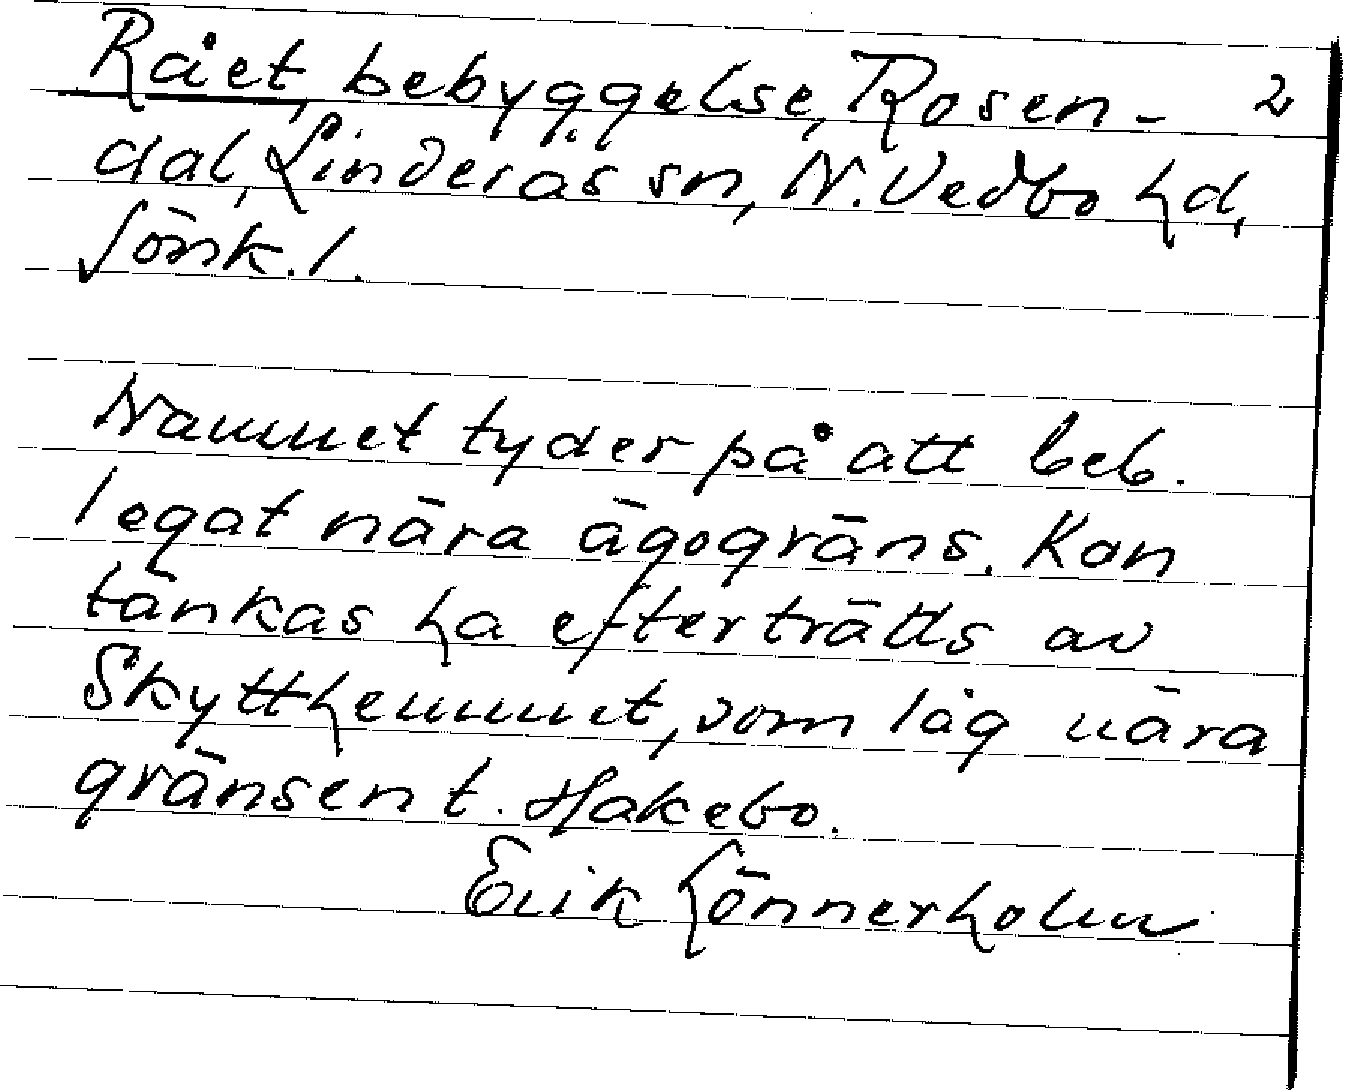 Rået, bebyggelse, Rosen- 2
dal, Linderås sn, N. Vedbo hd,
Jönk. l.
Namnet tyder på att beb.
legat nära ägogräns. Kan
tänkas ha efterträtts av
Skytthemmet, som låg nära
gränsen t. Hakebo.
Erik Lönnerholm